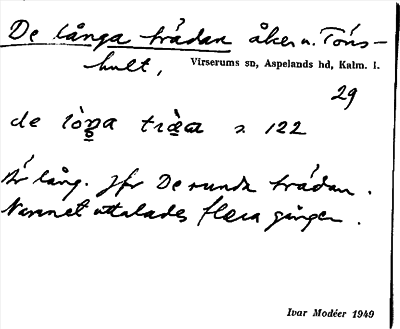 De långa trädan åker n. Töns-
hult, Virserums sn, Aspelands hd, Kalm. l.
29
de lòŋa s. 122
Är lång. Jfr De runda trädan.
Namnet uttalades flera gånger.
Ivar Modéer 1949